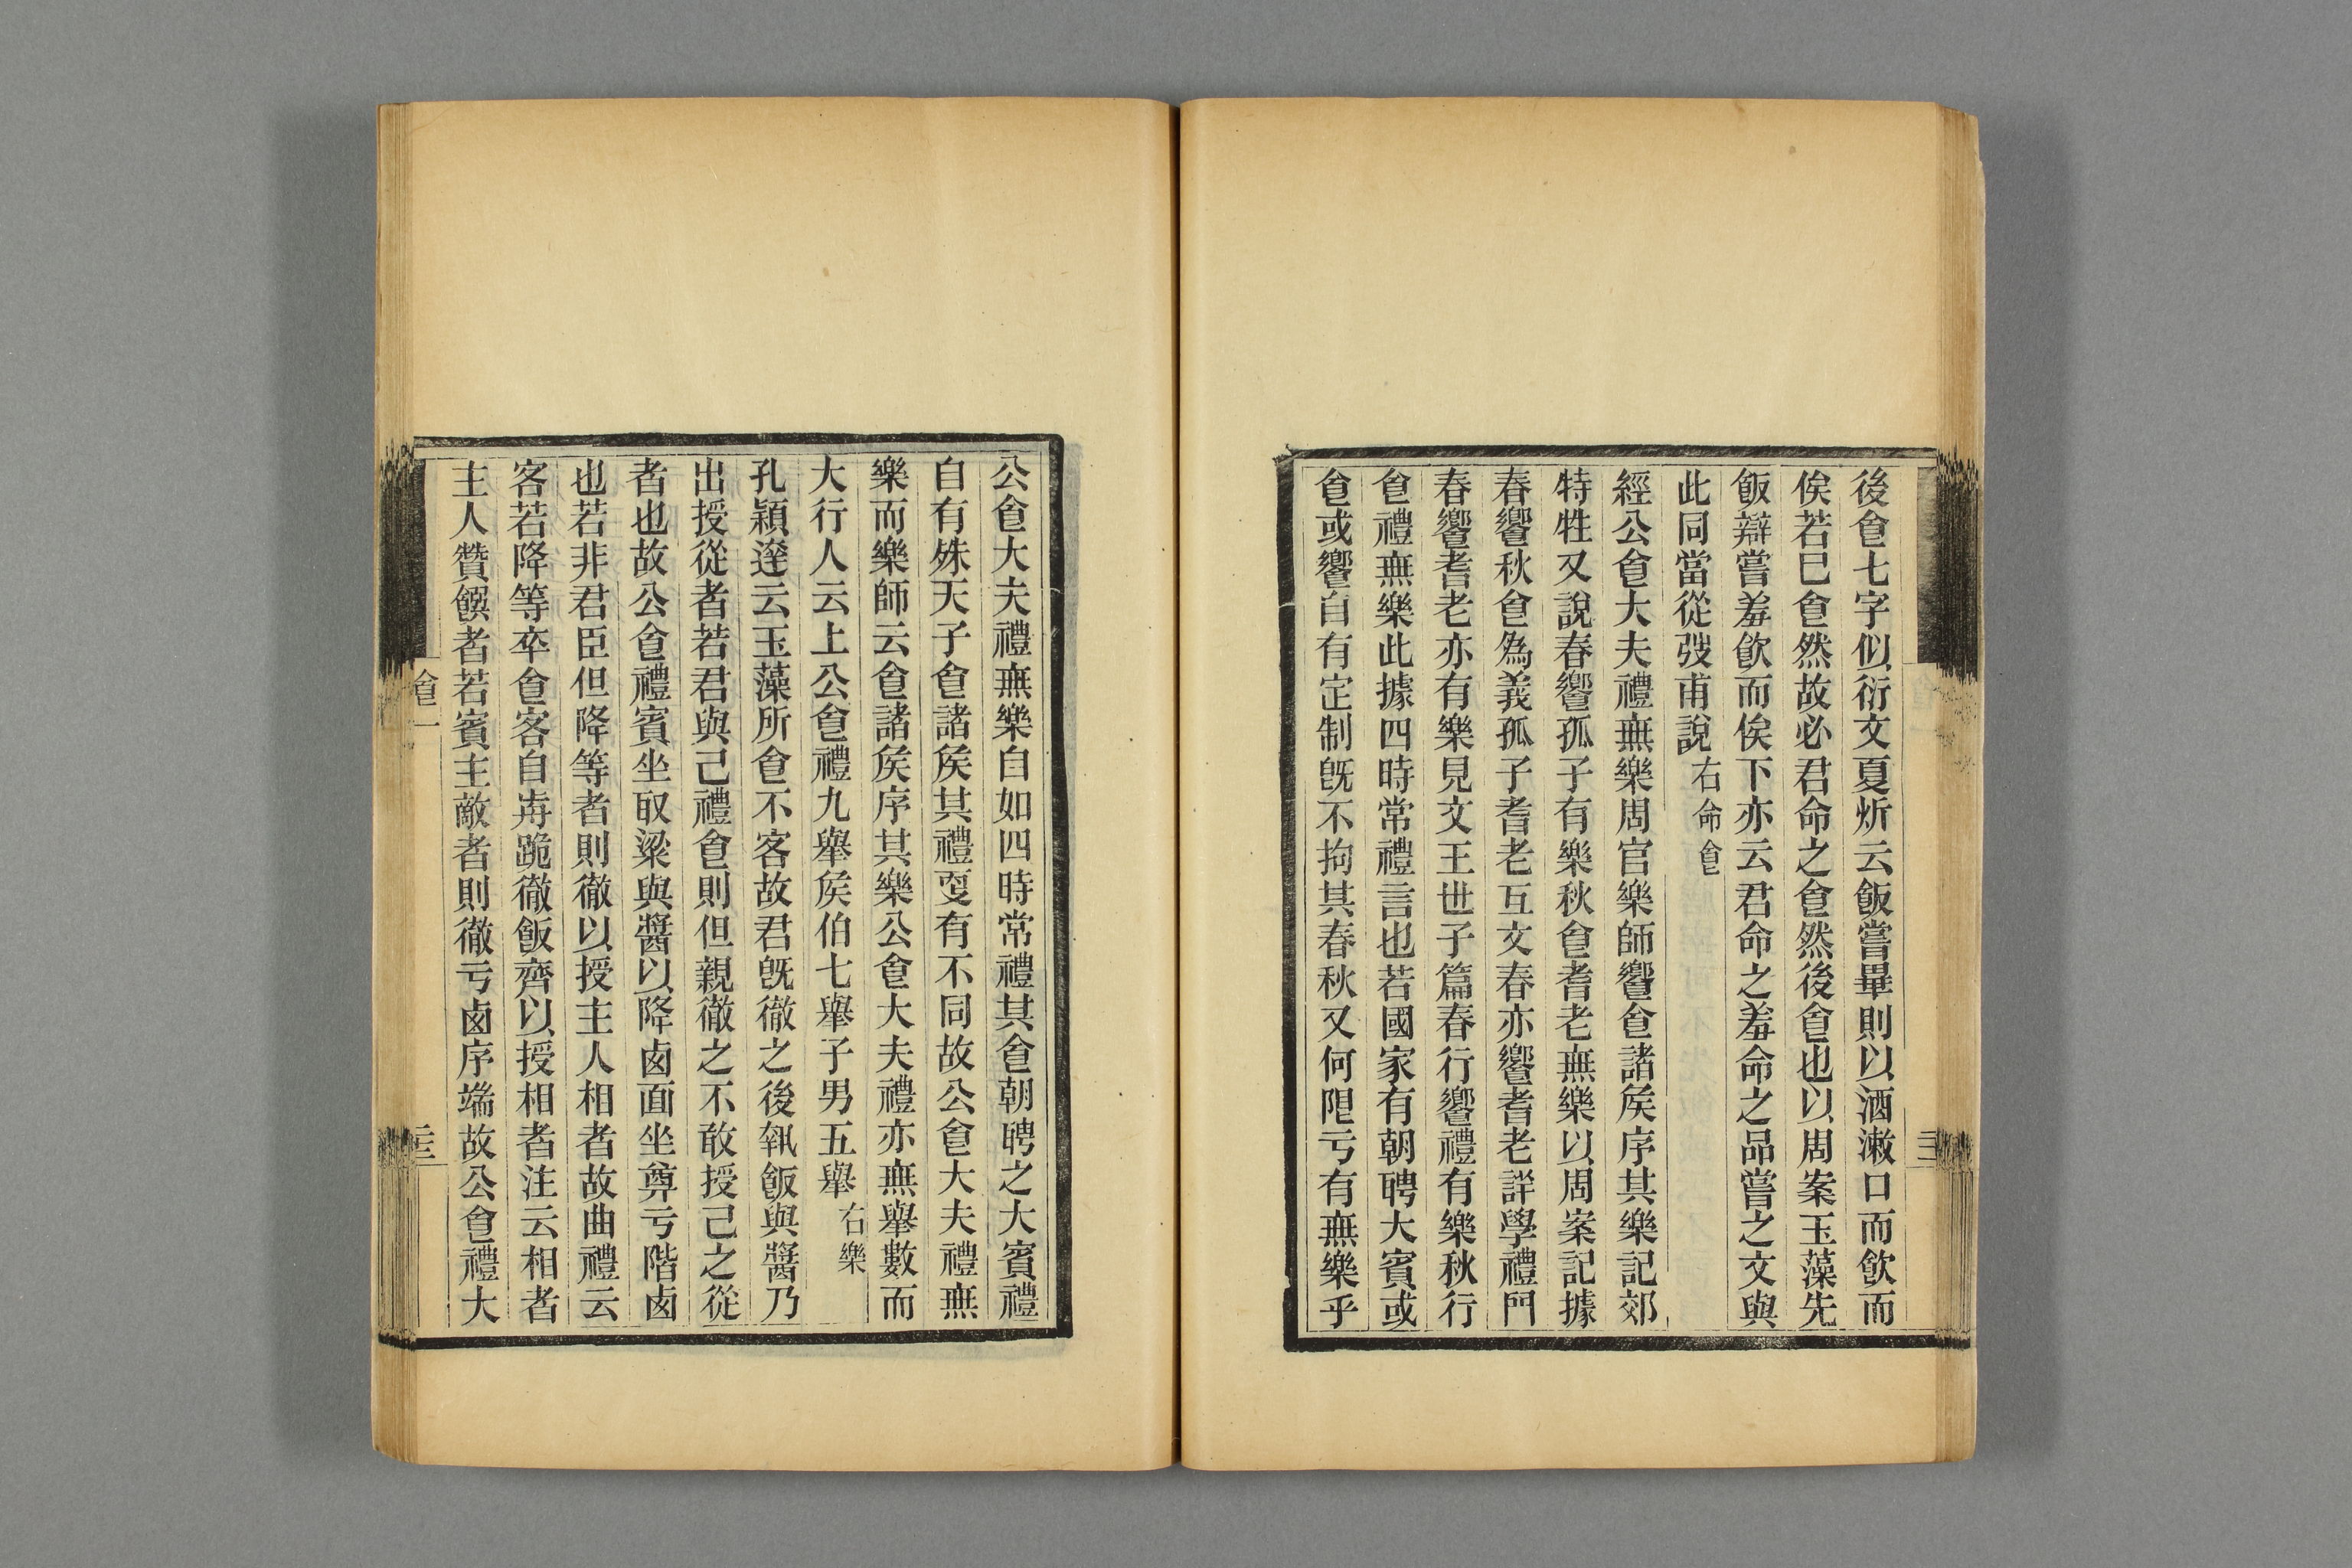 後㑹七字似衍文夏炘云飯嘗畢則以酒漱口而飮而
俟若已㑹然故必君命之㑹然後㑹也以周案玉藻先
飯辯嘗羞飮而俟下亦云君命之羞命之品嘗之文與
此同當從弢甫說右命㑹
經公㑹大夫禮無樂周官樂師饗㑹諸矦序其樂記郊
特牲又說春饗孤子有樂秋㑹耆老無樂以周案記據
春饗秋㑹爲義孤子耆老互文春亦饗耆老詳學禮門
春饗耆老亦有樂見文王世子篇春行饗禮有樂秋行
㑹禮無樂此據四時常禮言也若國家有朝聘大賓或
㑹或饗自有定制旣不拘其春秋又何限亏有無樂乎
公㑹大夫禮無樂自如四時常禮其㑹朝聘之大賓禮
自有殊天子㑹諸矦其禮叓有不同故公㑹大夫禮無
樂而樂師云㑹諸矦序其樂公㑹大夫禮亦無舉數而
大行人云上公㑹禮九舉矦伯七舉子男五舉右樂
孔穎達云玉藻所㑹不客故君旣徹之後執飯與醬乃
出授從者若君與己禮㑹則但親徹之不敢授己之從
者也故公㑹禮賓坐取粱與醬以降卤面坐奠亏階卤
也若非君臣但降等者則徹以授主人相者故曲禮云
客若降等卒㑹客自歬跪徹飯齊以授相者注云相者
主人贊饌者若賓主敵者則徹亏卤序端故公㑹禮大
㑹一
二三